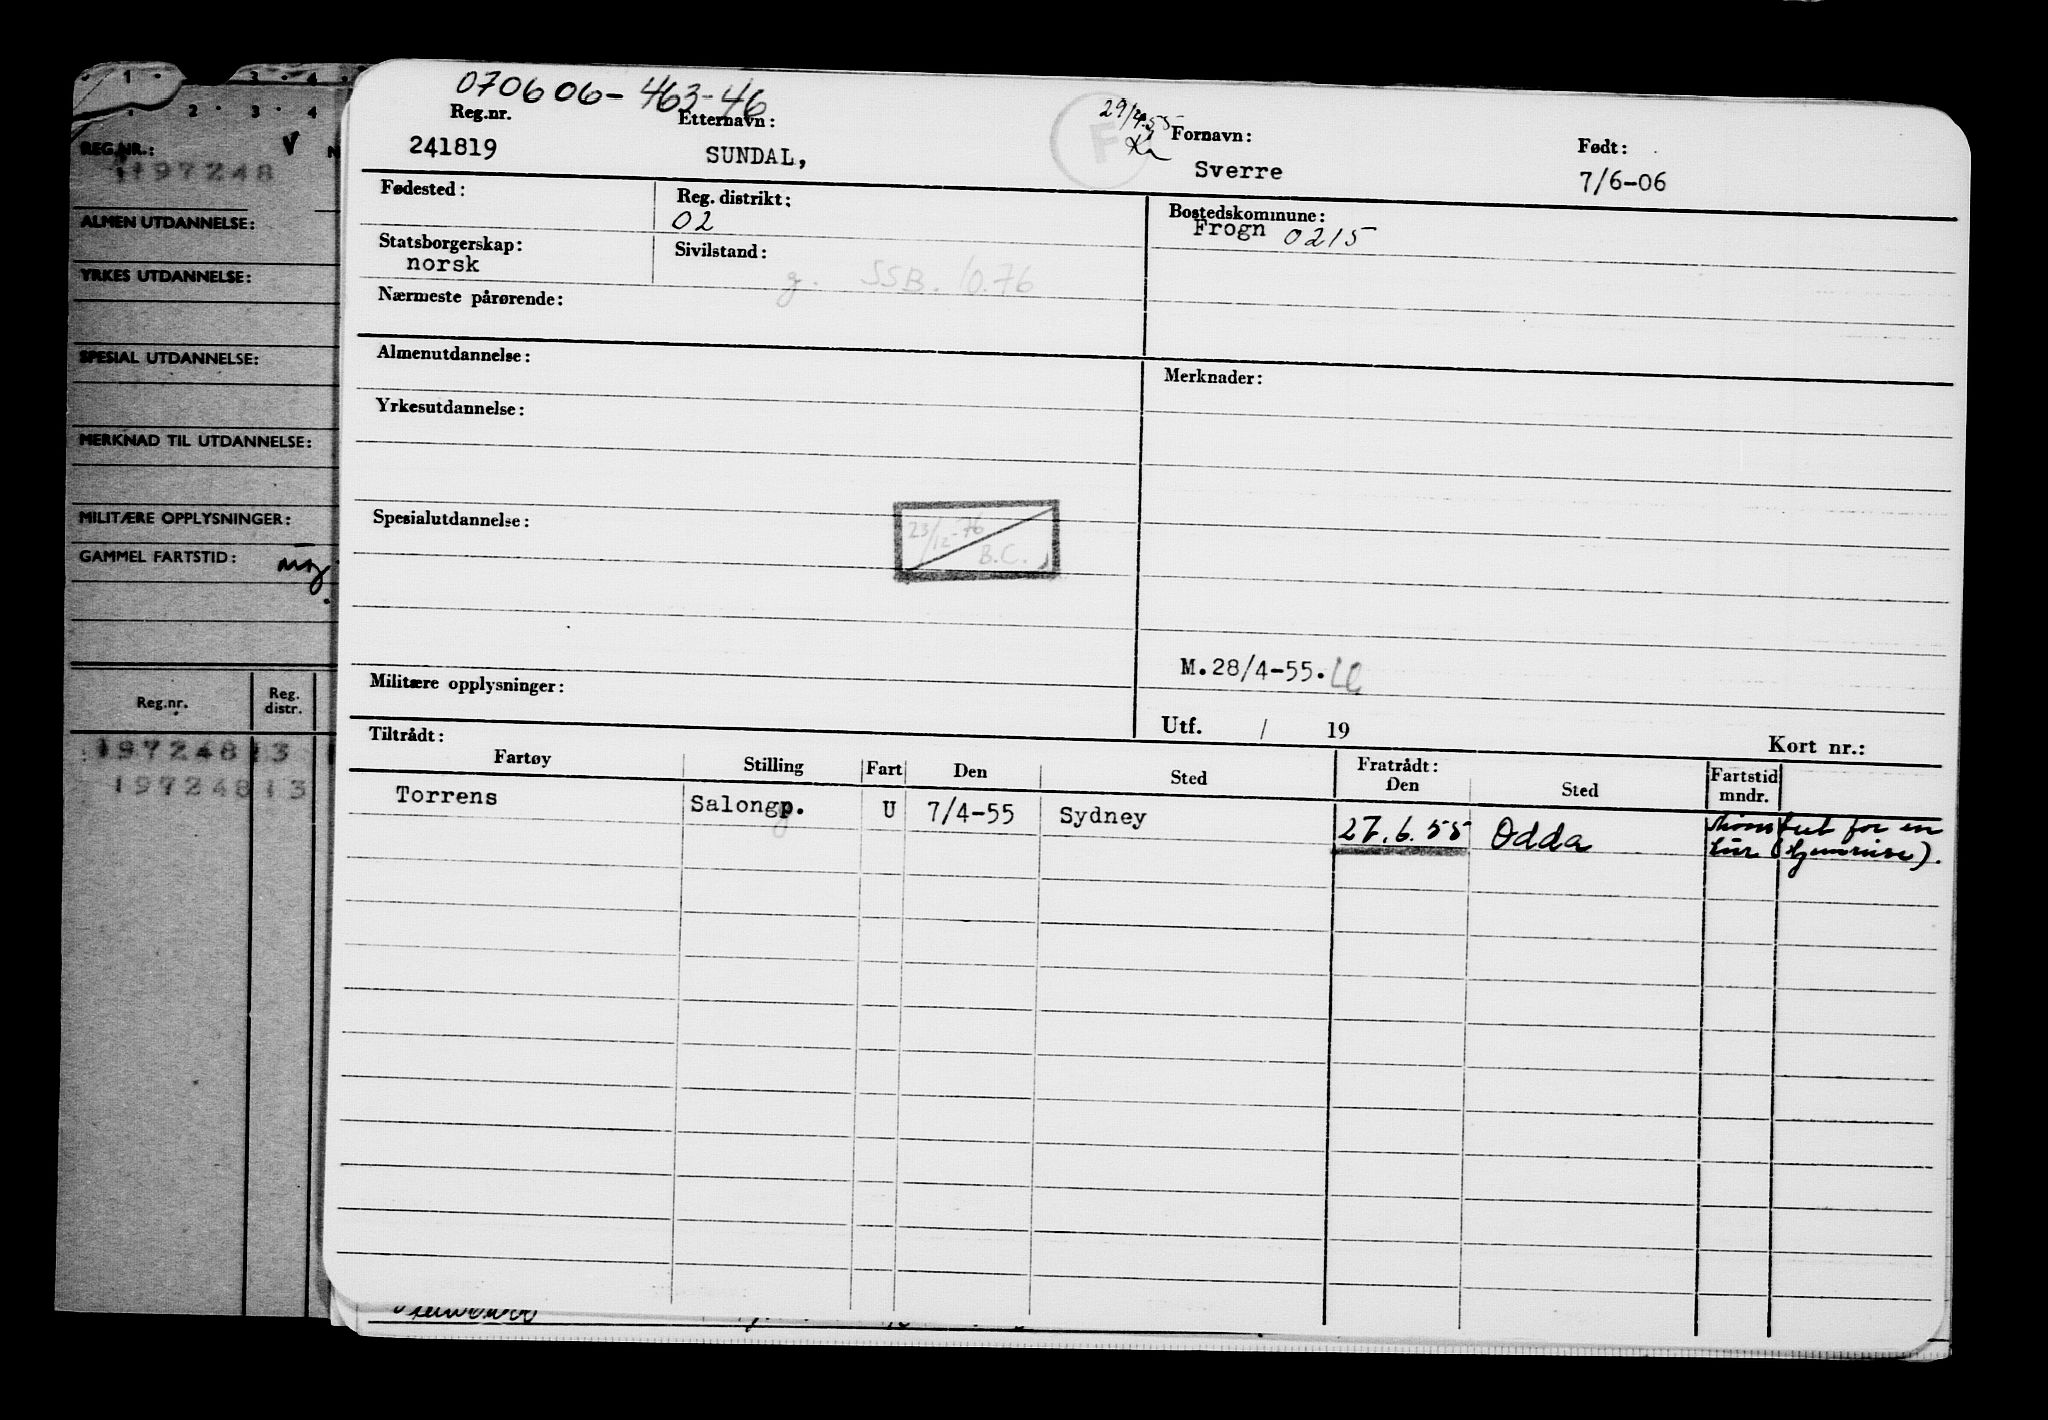 1 3 4
2 3 4
REG.NR.: V
197248
ALMEN UTDANNELSE:
YRKES UTDANNELSE:
SPESIAL UTDANNELSE:
MERKNAD TIL UTDANNELSE:
MILITÆRE OPPLYSNINGER:
GAMMEL FARTSTID:
Reg.nr. Reg. distr.
197248 13
197248 13
070606-463-46
Reg.nr. Etternavn: 29/4.55 Fornavn: Født:
241819 SUNDAL, F Sverre 7/6-06
Fødested: Reg. distrikt: Bostedskommune:
02 Frogn 0215
Statsborgerskap: Sivilstand:
norsk g. SSB. 10.76
Nærmeste pårørende:
Almenutdannelse: Merknader:
Yrkesutdannelse:
Spesialutdannelse: 23/12-76 B.C.
M.28/4-55.
Militære opplysninger:
Utf. / 19 Kort nr.:
Tiltrådt: Fratrådt:
Fartøy Stilling Fart Den Sted Den Sted Fartstid mndr.
Torrens Salongp. U 7/4-55 Sydney 27.6.55 Odda for en
tur